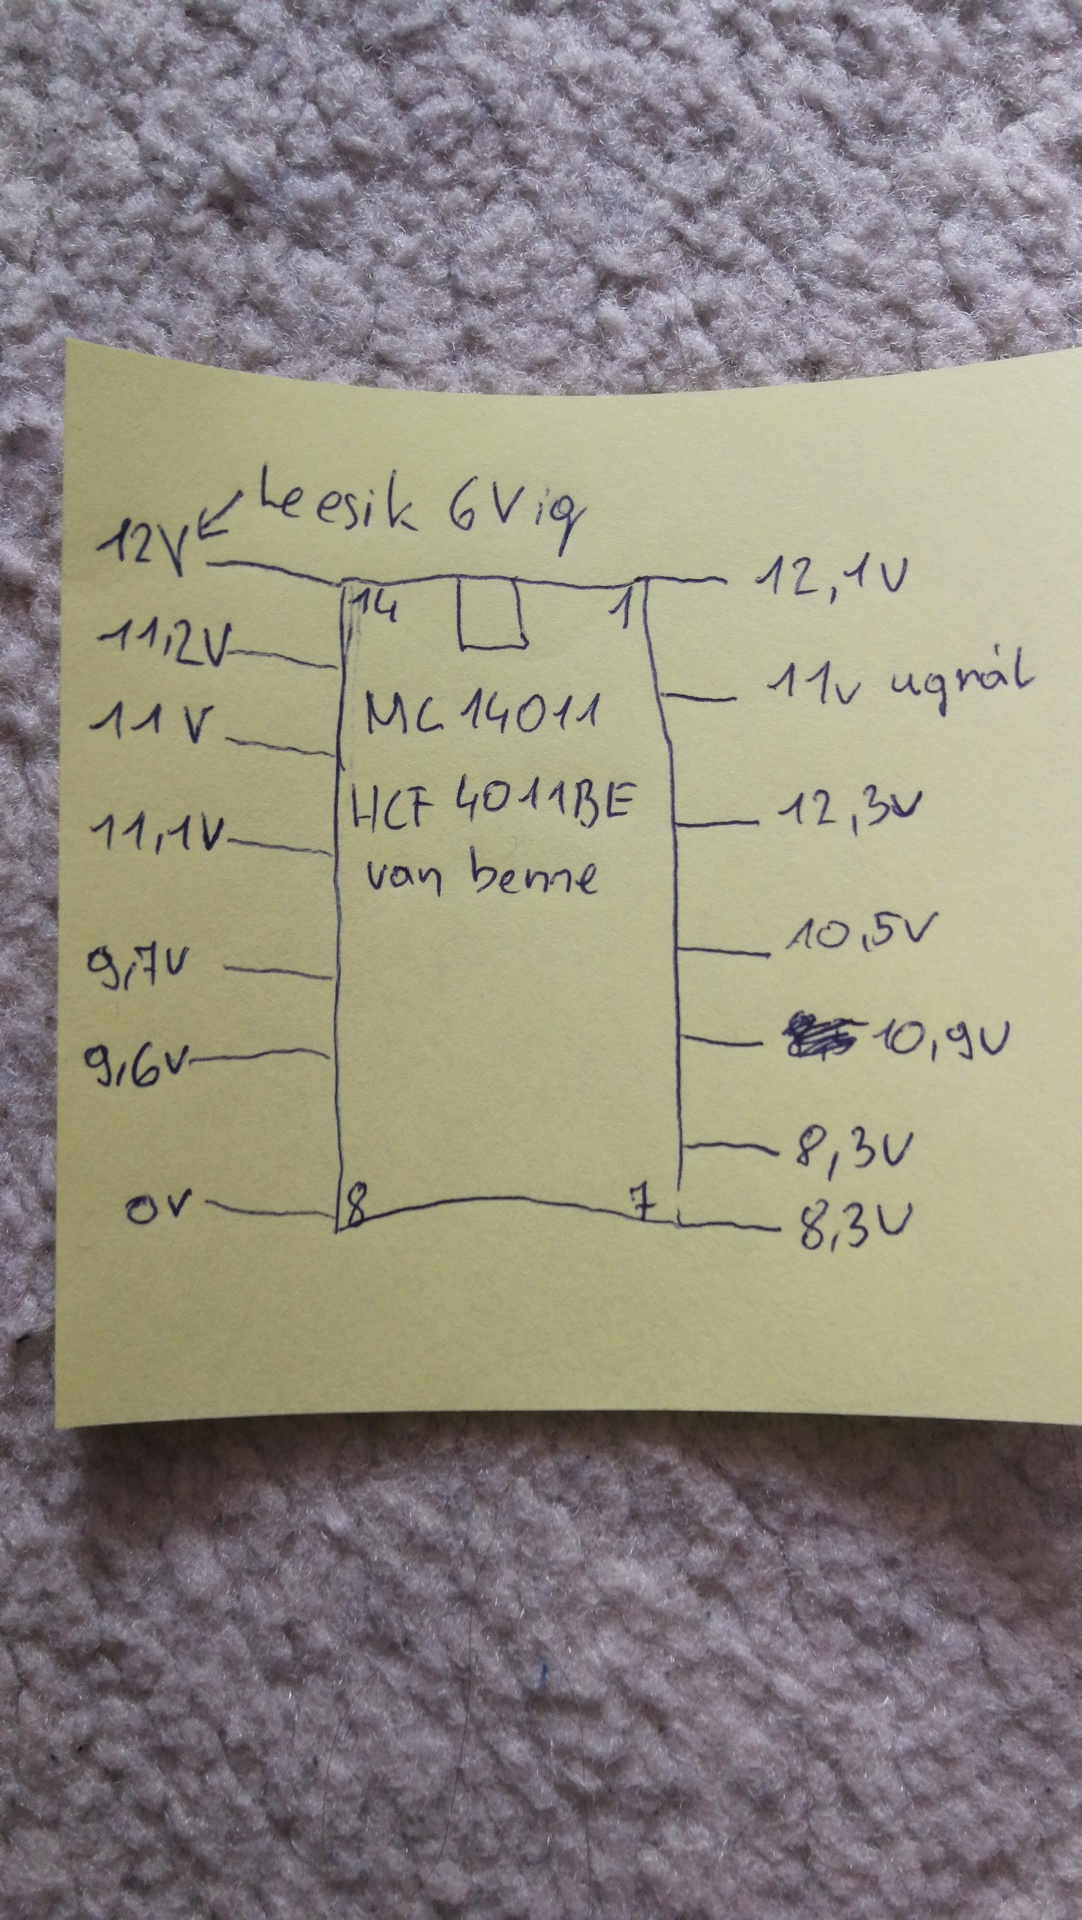 leesik 6Vig
12V
14
1
12,1V
11,2V
11V ugrál
11V
MC 14011
12,3V
HCF 4011BE
11,1V
van benne
10,5V
9,7V
10,9V
9,6V
8,3V
0V
8
7
8,3V